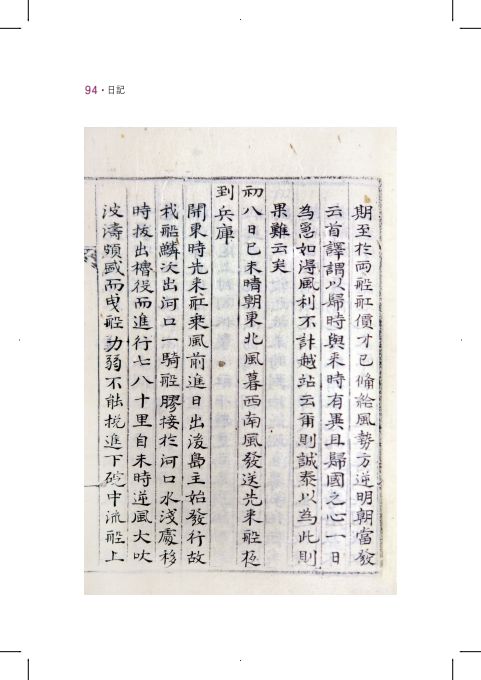 94 · 日記
期至於両船舡價才已備給風勢方逆明朝當發
云首譯謂以歸時與來時有異且歸國之心一日
為急如得風利不計越站云爾則誠泰以為此則
果難云矣
初八日己未晴朝東北風暮西南風發送先來船夜
到兵庫
開東時先来舡乘風前進日出後島主始發行故
我船鱗次出河口一騎船膠接於河口水淺處移
時拔出櫓役而進行七八十里自未時逆風大吹
波濤頗盛而曳船力弱不能挽進下碇中流船上